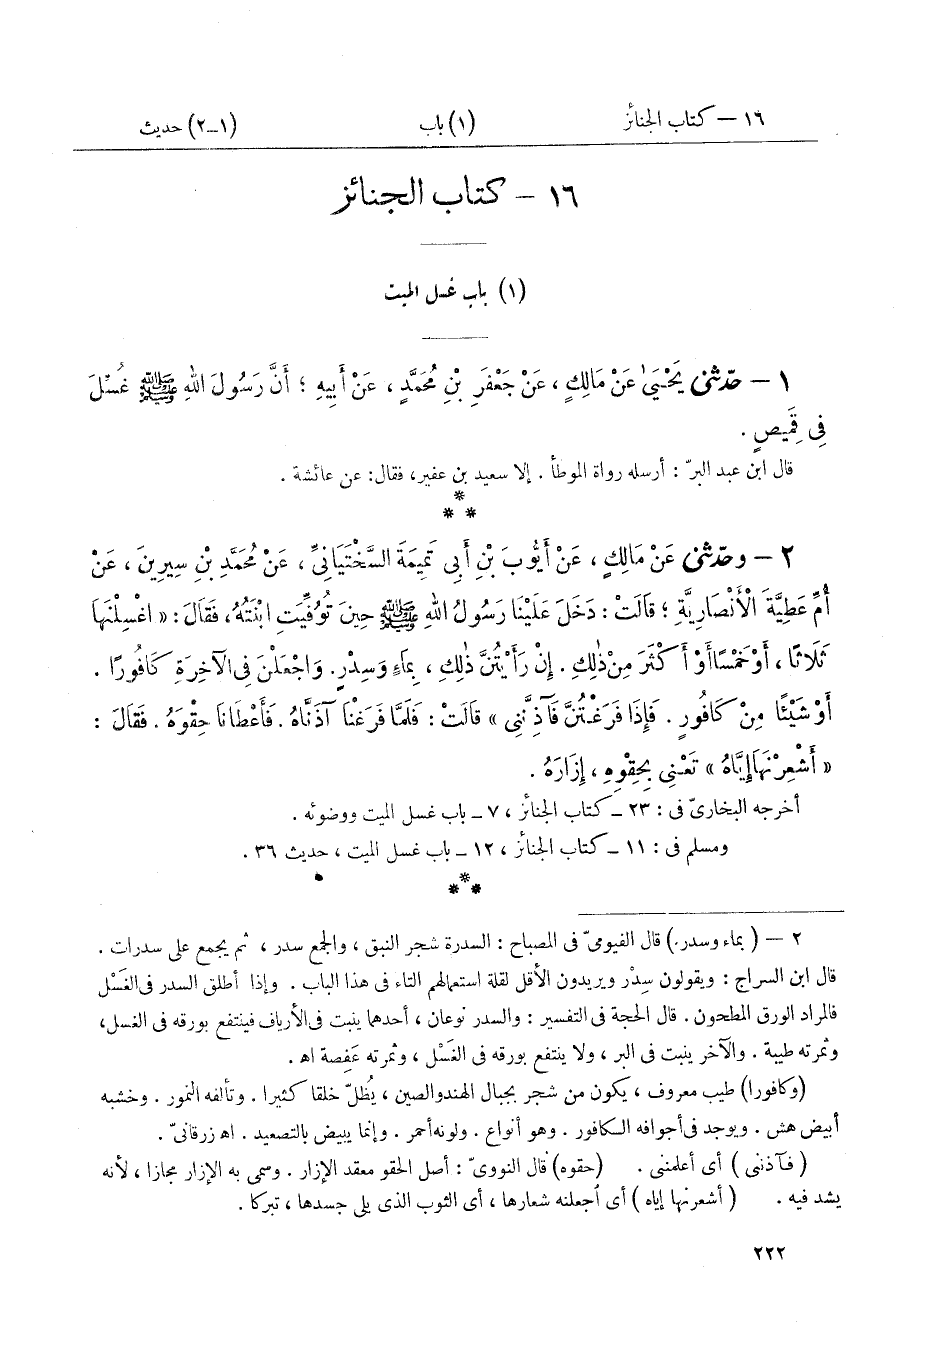 ١٦ – كتاب الجنائز (١) باب (١–٢) حديث
١٦ – كتاب الجنائز
(١) باب غسل الميت
١ – حدّثنى يَحْيَىٰ عَنْ مَالِكٍ ، عَنْ جَعْفَرِ بْنِ مُحَمَّدٍ ، عَنْ أَبِيهِ ؛ أَنَّ رَسُولَ اللهِ ﷺ غُسِّلَ
فِى قَمِيصٍ .
قال ابن عبد البرّ : أرسله رواة الموطأ . إلا سعيد بن عفير، فقال: عن عائشة .
*
* *
٢ – وحدّثنى عَنْ مَالِكٍ ، عَنْ أَيُّوبَ بْنِ أَبِى تَمِيمَةَ السَّخْتَيَانِىِّ ، عَنْ مُحَمَّدِ بْنِ سِيرِينَ ، عَنْ
أُمِّ عَطِيَّةَ الْأَنْصَارِيَّةِ ؛ قَالَتْ : دَخَلَ عَلَيْنَا رَسُولُ اللهِ ﷺ حِينَ تُوُفِّيَتِ ابْنَتُهُ، فَقَالَ : « اغْسِلْنَهَا
ثَلَاثًا ، أَوْ خَمْسًا أَوْ أَكْثَرَ مِنْ ذٰلِكَ . إِنْ رَأَيْتُنَّ ذٰلِكَ ، بِمَاءٍ وَسِدْرٍ. وَاجْعَلْنَ فِى الْآخِرَةِ كَافُورًا .
أَوْ شَيْئًا مِنْ كَافُورٍ . فَإِذَا فَرَغْتُنَّ فَآذِنَّنِى » قَالَتْ : فَلَمَّا فَرَغْنَا آذَنَّاهُ . فَأَعْطَانَا حِقْوَهُ . فَقَالَ :
« أَشْعِرْنَهَا إِيَّاهُ » تَعْنِى بِحِقْوِهِ ، إِزَارَهُ .
أخرجه البخارىّ فى : ٢٣ – كتاب الجنائز ، ٧ – باب غسل الميت ووضوئه .
ومسلم فى : ١١ – كتاب الجنائز ، ١٢ – باب غسل الميت ، حديث ٣٦ .
*
* *
٢ – ( بماء وسدر ) قال الفيومىّ فى المصباح : السدرة شجر النبق ، والجمع سدر ، ثم يجمع على سدرات .
قال ابن السراج : ويقولون سِدْر ويريدون الأقل لقلة استعمالهم التاء فى هذا الباب . وإذا أطلق السدر فى الغَسْل
فالمراد الورق المطحون . قال الحجة فى التفسير : والسدر نوعان ، أحدهما ينبت فى الأرياف فينتفع بورقه فى الغسل،
وثمرته طيبة . والآخر ينبت فى البر ، ولا ينتفع بورقه فى الغَسْل ، وثمرته عَفِصة اهـ .
(وكافورا) طيب معروف ، يكون من شجر بجبال الهند والصين ، يُظلّ خلقا كثيرا . وتألفه النمور . وخشبه
أبيض هش . ويوجد فى أجوافه الكافور . وهو أنواع . ولونه أحمر . وإنما يبيض بالتصعيد . اهـ زرقانىّ .
( فآذننى ) أى أعلمننى . (حقوه) قال النووىّ : أصل الحقو معقد الإزار . وسمى به الإزار مجازا ، لأنه
يشد فيه . ( أشعرنها إياه ) أى اجعلنه شعارها ، أى الثوب الذى يلى جسدها ، تبركا .
٢٢٢